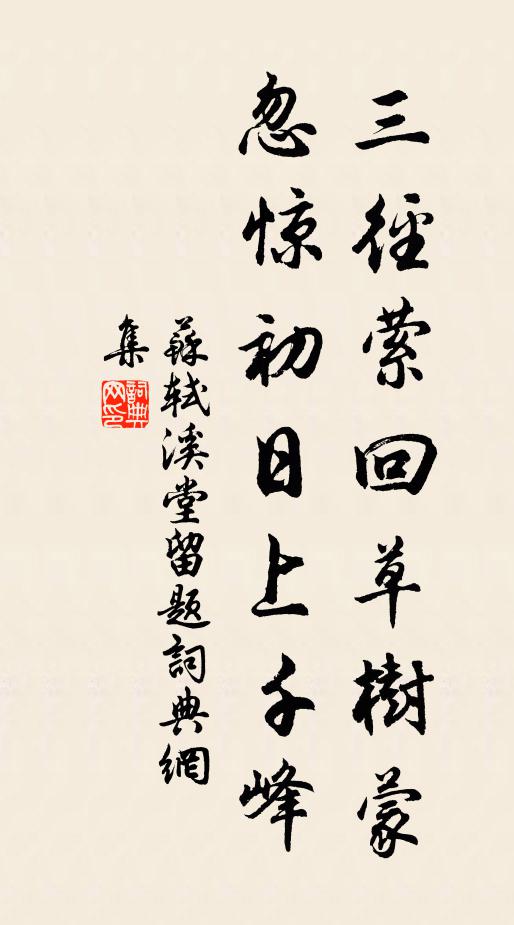 三徑萦回草樹蒙
忽惊初日上千峰
蘇轼溪堂留題詞典網
集
詞典网印